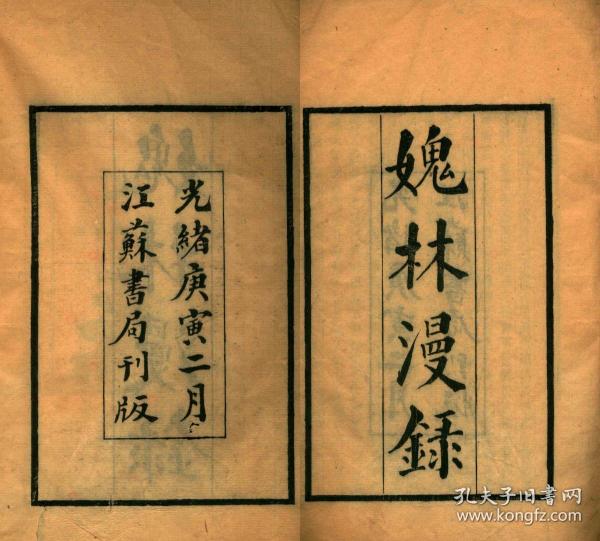 媿林漫録
光緒庚寅二月
江蘇書局刊版
孔夫子旧书网
www.kongfz.com